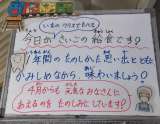 いまの クラスでたべる
今日が さいごの 給食です!
1年間の たのしかった 思い出とともに
かみしめながら 味わいましょう!
4月からも 元気な みなさんに
あえるのを たのしみにしています!